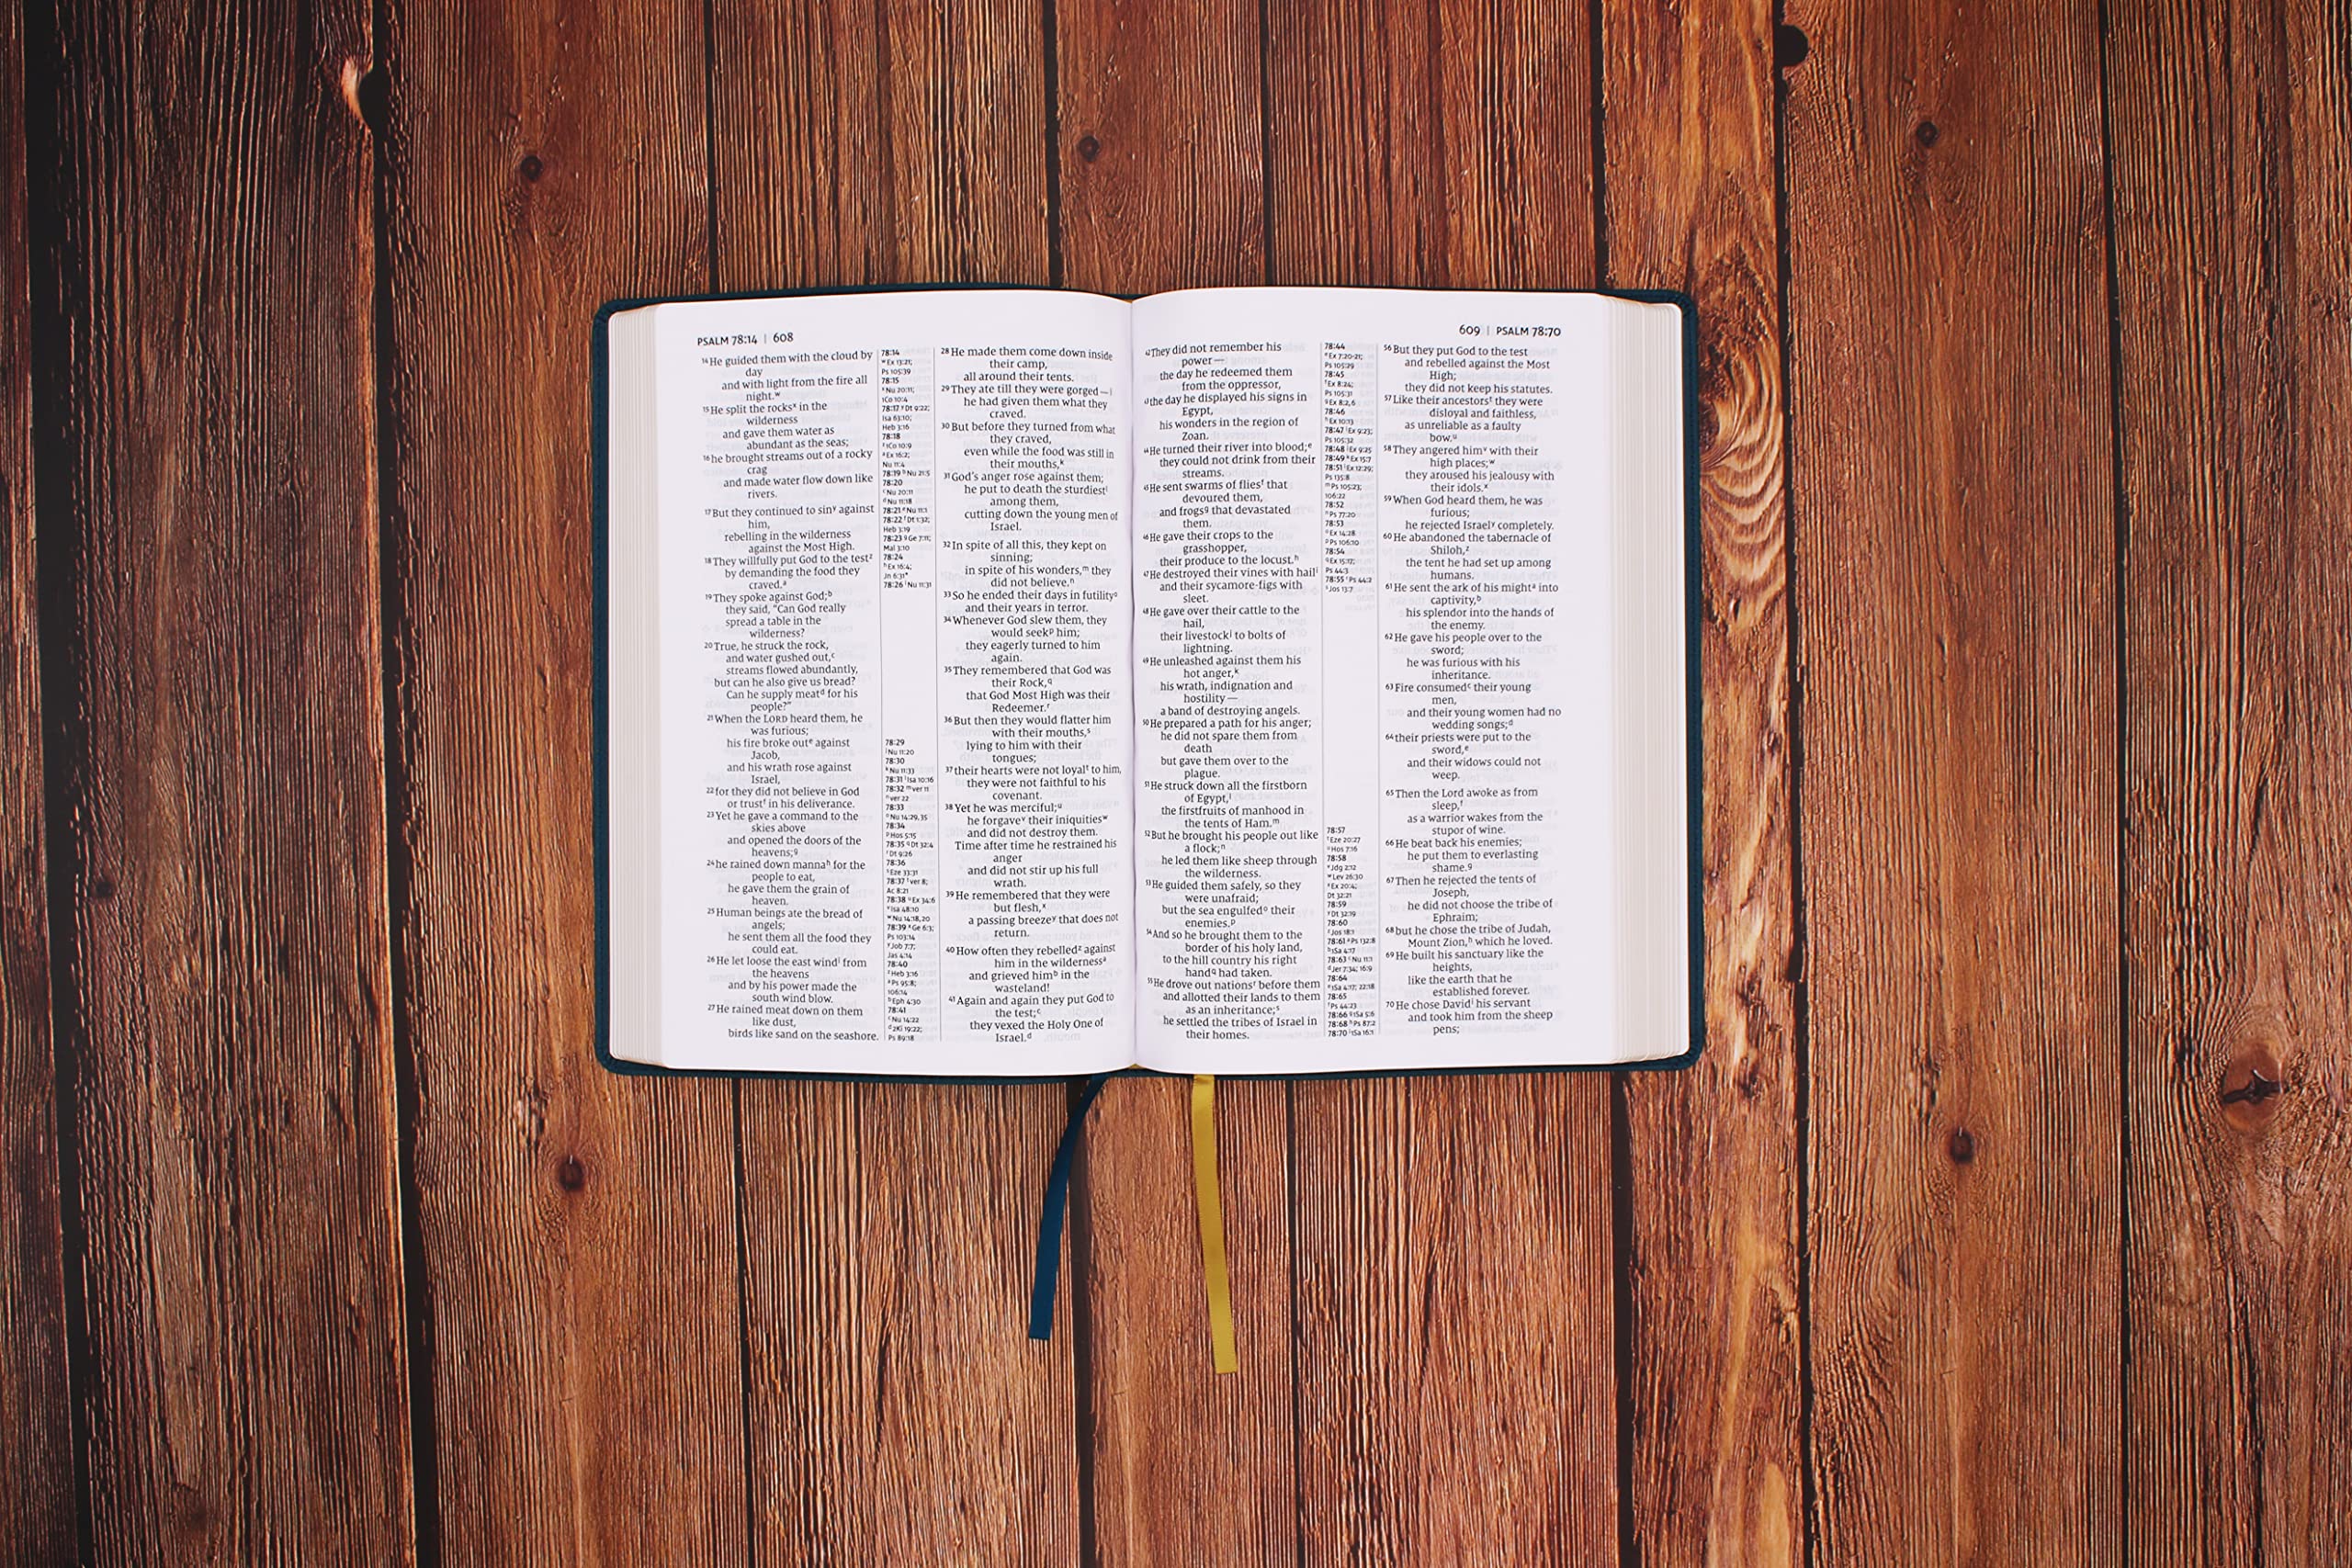 PSALM 78:14 | 608
14 He guided them with the cloud by
day
and with light from the fire all
night.w
15 He split the rocksx in the
wilderness
and gave them water as
abundant as the seas;
16 he brought streams out of a rocky
crag
and made water flow down like
rivers.
17 But they continued to siny against
him,
rebelling in the wilderness
against the Most High.
18 They willfully put God to the testz
by demanding the food they
craved.a
19 They spoke against God;b
they said, “Can God really
spread a table in the
wilderness?
20 True, he struck the rock,
and water gushed out,c
streams flowed abundantly,
but can he also give us bread?
Can he supply meatd for his
people?”
21 When the LORD heard them, he
was furious;
his fire broke oute against
Jacob,
and his wrath rose against
Israel,
22 for they did not believe in God
or trustf in his deliverance.
23 Yet he gave a command to the
skies above
and opened the doors of the
heavens;g
24 he rained down mannah for the
people to eat,
he gave them the grain of
heaven.
25 Human beings ate the bread of
angels;
he sent them all the food they
could eat.
26 He let loose the east windi from
the heavens
and by his power made the
south wind blow.
27 He rained meat down on them
like dust,
birds like sand on the seashore.
78:14
w Ex 13:21;
Ps 105:39
78:15
x Nu 20:11;
1Co 10:4
78:17 y Dt 9:22;
Isa 63:10;
Heb 3:16
78:18
z 1Co 10:9
a Ex 16:2;
Nu 11:4
78:19 b Nu 21:5
78:20
c Nu 20:11
d Nu 11:18
78:21 e Nu 11:1
78:22 f Dt 1:32;
Heb 3:19
78:23 g Ge 7:11;
Mal 3:10
78:24
h Ex 16:4;
Jn 6:31*
78:26 i Nu 11:31
78:29
j Nu 11:20
78:30
k Nu 11:33
78:31 l Isa 10:16
78:32 m ver 11
n ver 22
78:33
o Nu 14:29, 35
78:34
p Hos 5:15
78:35 q Dt 32:4
r Dt 9:26
78:36
s Eze 33:31
78:37 t ver 8;
Ac 8:21
78:38 u Ex 34:6
v Isa 48:10
w Nu 14:18, 20
78:39 x Ge 6:3;
Ps 103:14
y Job 7:7;
Jas 4:14
78:40
z Heb 3:16
a Ps 95:8;
106:14
b Eph 4:30
78:41
c Nu 14:22
d 2Ki 19:22;
Ps 89:18
28 He made them come down inside
their camp,
all around their tents.
29 They ate till they were gorged—j
he had given them what they
craved.
30 But before they turned from what
they craved,
even while the food was still in
their mouths,k
31 God’s anger rose against them;
he put to death the sturdiestl
among them,
cutting down the young men of
Israel.
32 In spite of all this, they kept on
sinning;
in spite of his wonders,m they
did not believe.n
33 So he ended their days in futilityo
and their years in terror.
34 Whenever God slew them, they
would seekp him;
they eagerly turned to him
again.
35 They remembered that God was
their Rock,q
that God Most High was their
Redeemer.r
36 But then they would flatter him
with their mouths,s
lying to him with their
tongues;
37 their hearts were not loyalt to him,
they were not faithful to his
covenant.
38 Yet he was merciful;u
he forgavev their iniquitiesw
and did not destroy them.
Time after time he restrained his
anger
and did not stir up his full
wrath.
39 He remembered that they were
but flesh,x
a passing breezey that does not
return.
40 How often they rebelledz against
him in the wildernessa
and grieved himb in the
wasteland!
41 Again and again they put God to
the test;c
they vexed the Holy One of
Israel.d
609 | PSALM 78:70
42 They did not remember his
power—
the day he redeemed them
from the oppressor,
43 the day he displayed his signs in
Egypt,
his wonders in the region of
Zoan.
44 He turned their river into blood;e
they could not drink from their
streams.
45 He sent swarms of fliesf that
devoured them,
and frogsg that devastated
them.
46 He gave their crops to the
grasshopper,
their produce to the locust.h
47 He destroyed their vines with haili
and their sycamore-figs with
sleet.
48 He gave over their cattle to the
hail,
their livestockj to bolts of
lightning.
49 He unleashed against them his
hot anger,k
his wrath, indignation and
hostility—
a band of destroying angels.
50 He prepared a path for his anger;
he did not spare them from
death
but gave them over to the
plague.
51 He struck down all the firstborn
of Egypt,l
the firstfruits of manhood in
the tents of Ham.m
52 But he brought his people out like
a flock;n
he led them like sheep through
the wilderness.
53 He guided them safely, so they
were unafraid;
but the sea engulfedo their
enemies.p
54 And so he brought them to the
border of his holy land,
to the hill country his right
handq had taken.
55 He drove out nationsr before them
and allotted their lands to them
as an inheritance;s
he settled the tribes of Israel in
their homes.
78:44
e Ex 7:20-21;
Ps 105:29
78:45
f Ex 8:24;
Ps 105:31
g Ex 8:2, 6
78:46
h Ex 10:13
78:47 i Ex 9:23;
Ps 105:32
78:48 j Ex 9:25
78:49 k Ex 15:7
78:51 l Ex 12:29;
Ps 135:8
m Ps 105:23;
106:22
78:52
n Ps 77:20
78:53
o Ex 14:28
p Ps 106:10
78:54
q Ex 15:17;
Ps 44:3
78:55 r Ps 44:2
s Jos 13:7
78:57
t Eze 20:27
u Hos 7:16
78:58
v Jdg 2:12
w Lev 26:30
x Ex 20:4;
Dt 32:21
78:59
y Dt 32:19
78:60
z Jos 18:1
78:61 a Ps 132:8
b 1Sa 4:17
78:63 c Nu 11:1
d Jer 7:34; 16:9
78:64
e 1Sa 4:17; 22:18
78:65
f Ps 44:23
78:66 g 1Sa 5:6
78:68 h Ps 87:2
78:70 i 1Sa 16:1
56 But they put God to the test
and rebelled against the Most
High;
they did not keep his statutes.
57 Like their ancestorst they were
disloyal and faithless,
as unreliable as a faulty
bow.u
58 They angered himv with their
high places;w
they aroused his jealousy with
their idols.x
59 When God heard them, he was
furious;
he rejected Israely completely.
60 He abandoned the tabernacle of
Shiloh,z
the tent he had set up among
humans.
61 He sent the ark of his mighta into
captivity,b
his splendor into the hands of
the enemy.
62 He gave his people over to the
sword;
he was furious with his
inheritance.
63 Fire consumedc their young
men,
and their young women had no
wedding songs;d
64 their priests were put to the
sword,e
and their widows could not
weep.
65 Then the Lord awoke as from
sleep,f
as a warrior wakes from the
stupor of wine.
66 He beat back his enemies;
he put them to everlasting
shame.g
67 Then he rejected the tents of
Joseph,
he did not choose the tribe of
Ephraim;
68 but he chose the tribe of Judah,
Mount Zion,h which he loved.
69 He built his sanctuary like the
heights,
like the earth that he
established forever.
70 He chose Davidi his servant
and took him from the sheep
pens;